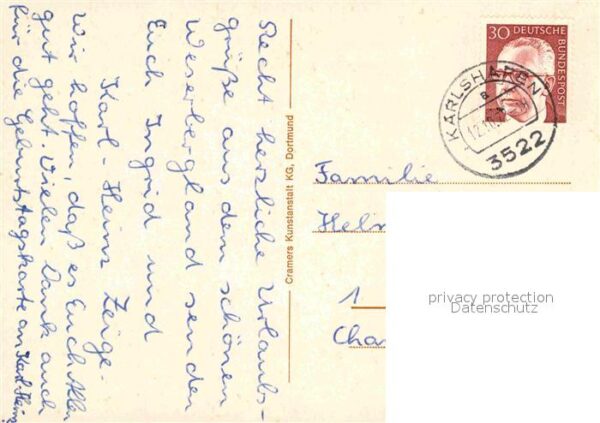 Recht herzliche Urlaubs-
grüße aus dem schönen
Weserbergland senden
Euch Ingrid und
Karl-Heinz
Wir hoffen, daß es Euch allen
gut geht. Vielen Dank auch
für die Geburtstagskarte an Karl-Heinz
Cramers Kunstanstalt KG, Dortmund
30 DEUTSCHE
BUNDESPOST
KARLSHAFEN
B
3522
Familie
Helm
1
Cha
privacy protection
Datenschutz